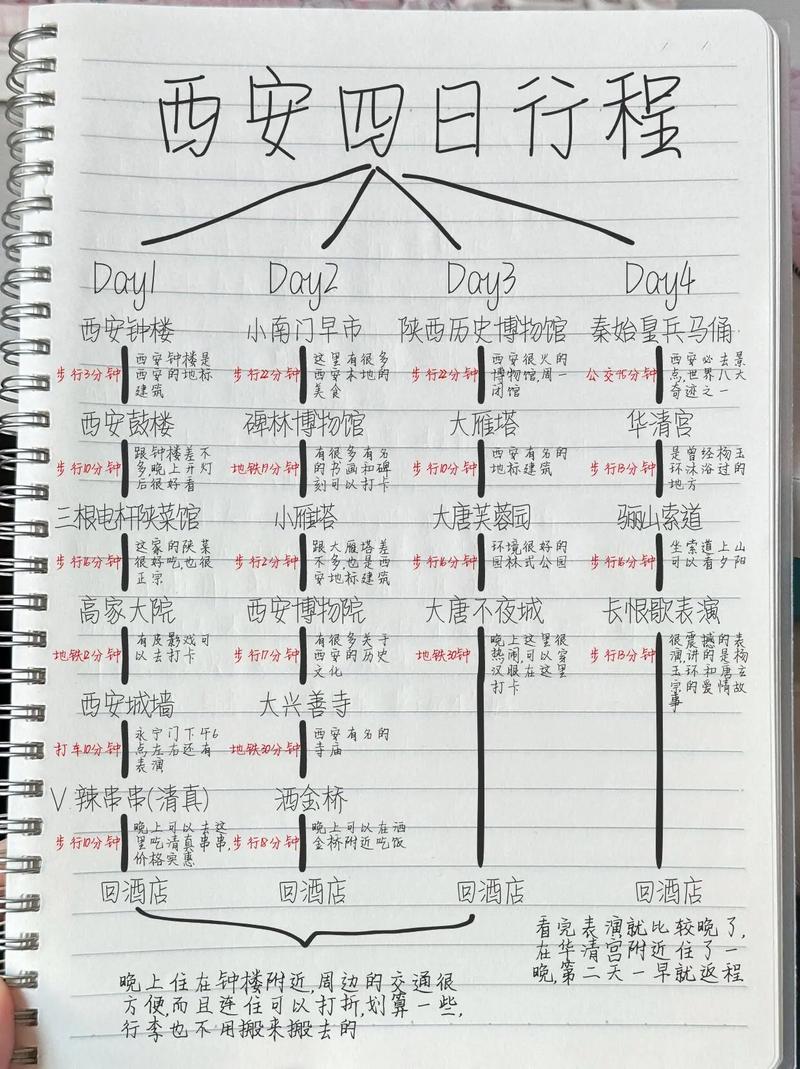 西安四日行程
Day1
Day2
Day3
Day4
西安钟楼
步行3分钟
西安钟楼是
西安的地标
建筑
西安鼓楼
步行10分钟
跟钟楼差不
多,晚上开灯
后很好看
三根电杆陕菜馆
步行16分钟
这家的陕菜
很好吃,也很
正宗
高家大院
地铁12分钟
有皮影戏可
以去打卡
西安城墙
打车10分钟
永宁门下午6
点左右还有
表演
V.辣串串(清真)
步行10分钟
晚上可以去这
里吃清真串串,
价格实惠
回酒店
小南门早市
步行22分钟
这里有很多
西安本地的
美食
碑林博物馆
地铁19分钟
有很多有名
的书画和碑
刻可以打卡
小雁塔
步行2分钟
跟大雁塔差
不多,也是西
安地标建筑
西安博物院
步行17分钟
有很多关于
西安的历史
文化
大兴善寺
地铁30分钟
西安有名的
寺庙
洒金桥
步行18分钟
晚上可以在洒
金桥附近吃饭
回酒店
陕西历史博物馆
步行22分钟
西安很火的
博物馆,周一
闭馆
大雁塔
步行10分钟
西安有名的
地标建筑
大唐芙蓉园
步行16分钟
环境很好的
园林式公园
大唐不夜城
地铁30分钟
晚上这里很
热闹,可以穿
汉服在这里
打卡
回酒店
秦始皇兵马俑
公交45分钟
西安必去景
点,世界八大
奇迹之一
华清宫
步行13分钟
是曾经杨玉
环沐浴过的
地方
骊山索道
步行16分钟
坐索道上山
可以看夕阳
长恨歌表演
步行13分钟
很震撼的表
演,讲的是杨
玉环和唐玄
宗的爱情故
事
回酒店
晚上住在钟楼附近,周边的交通很
方便,而且连住可以打折,划算一些,
行李也不用搬来搬去的
看完表演就比较晚了,
在华清宫附近住了一
晚,第二天一早就返程